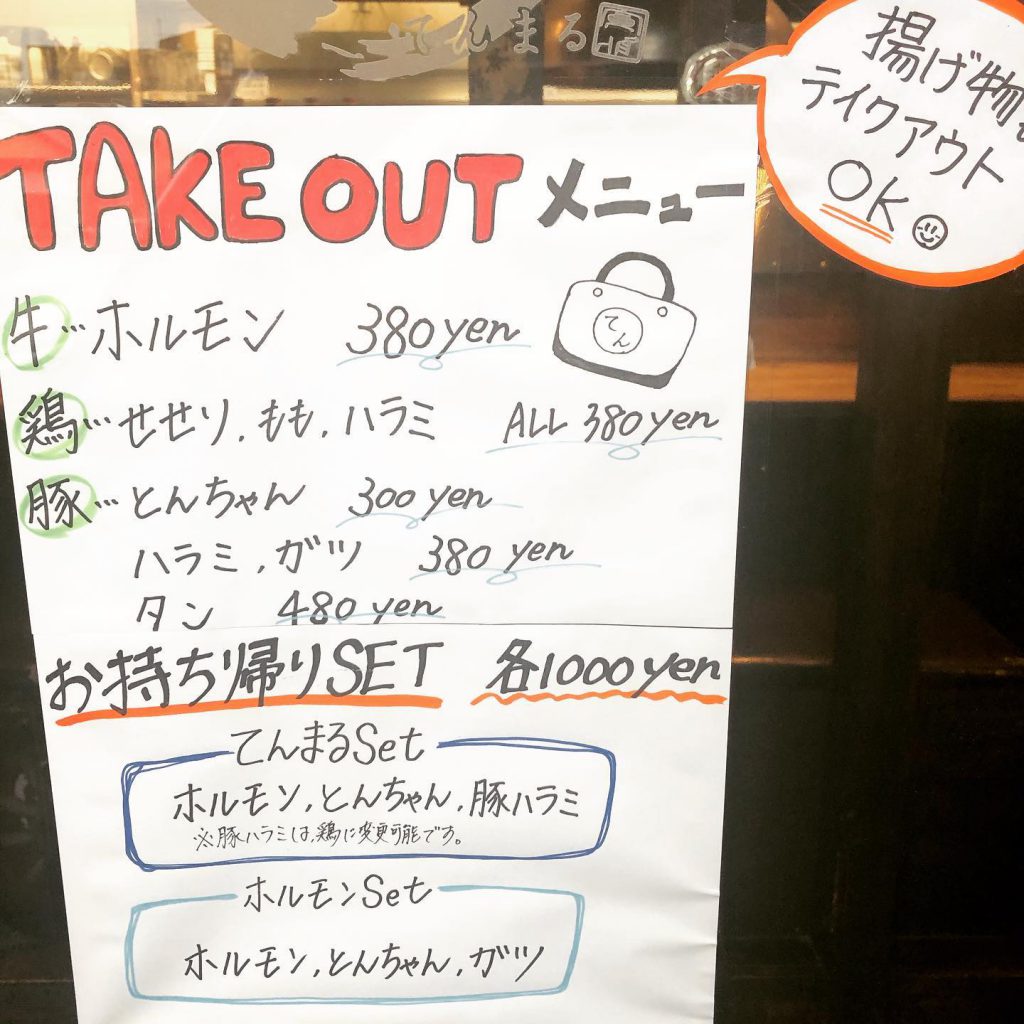 てんまる
揚げ物も
テイクアウト
OK
TAKE OUT メニュー
てん
牛…ホルモン 380yen
鶏…せせり、もも、ハラミ ALL 380yen
豚…とんちゃん 300yen
ハラミ、ガツ 380yen
タン 480yen
お持ち帰りSET 各1000yen
てんまるSet
ホルモン、とんちゃん、豚ハラミ
※豚ハラミは、鶏に変更可能です。
ホルモンSet
ホルモン、とんちゃん、ガツ